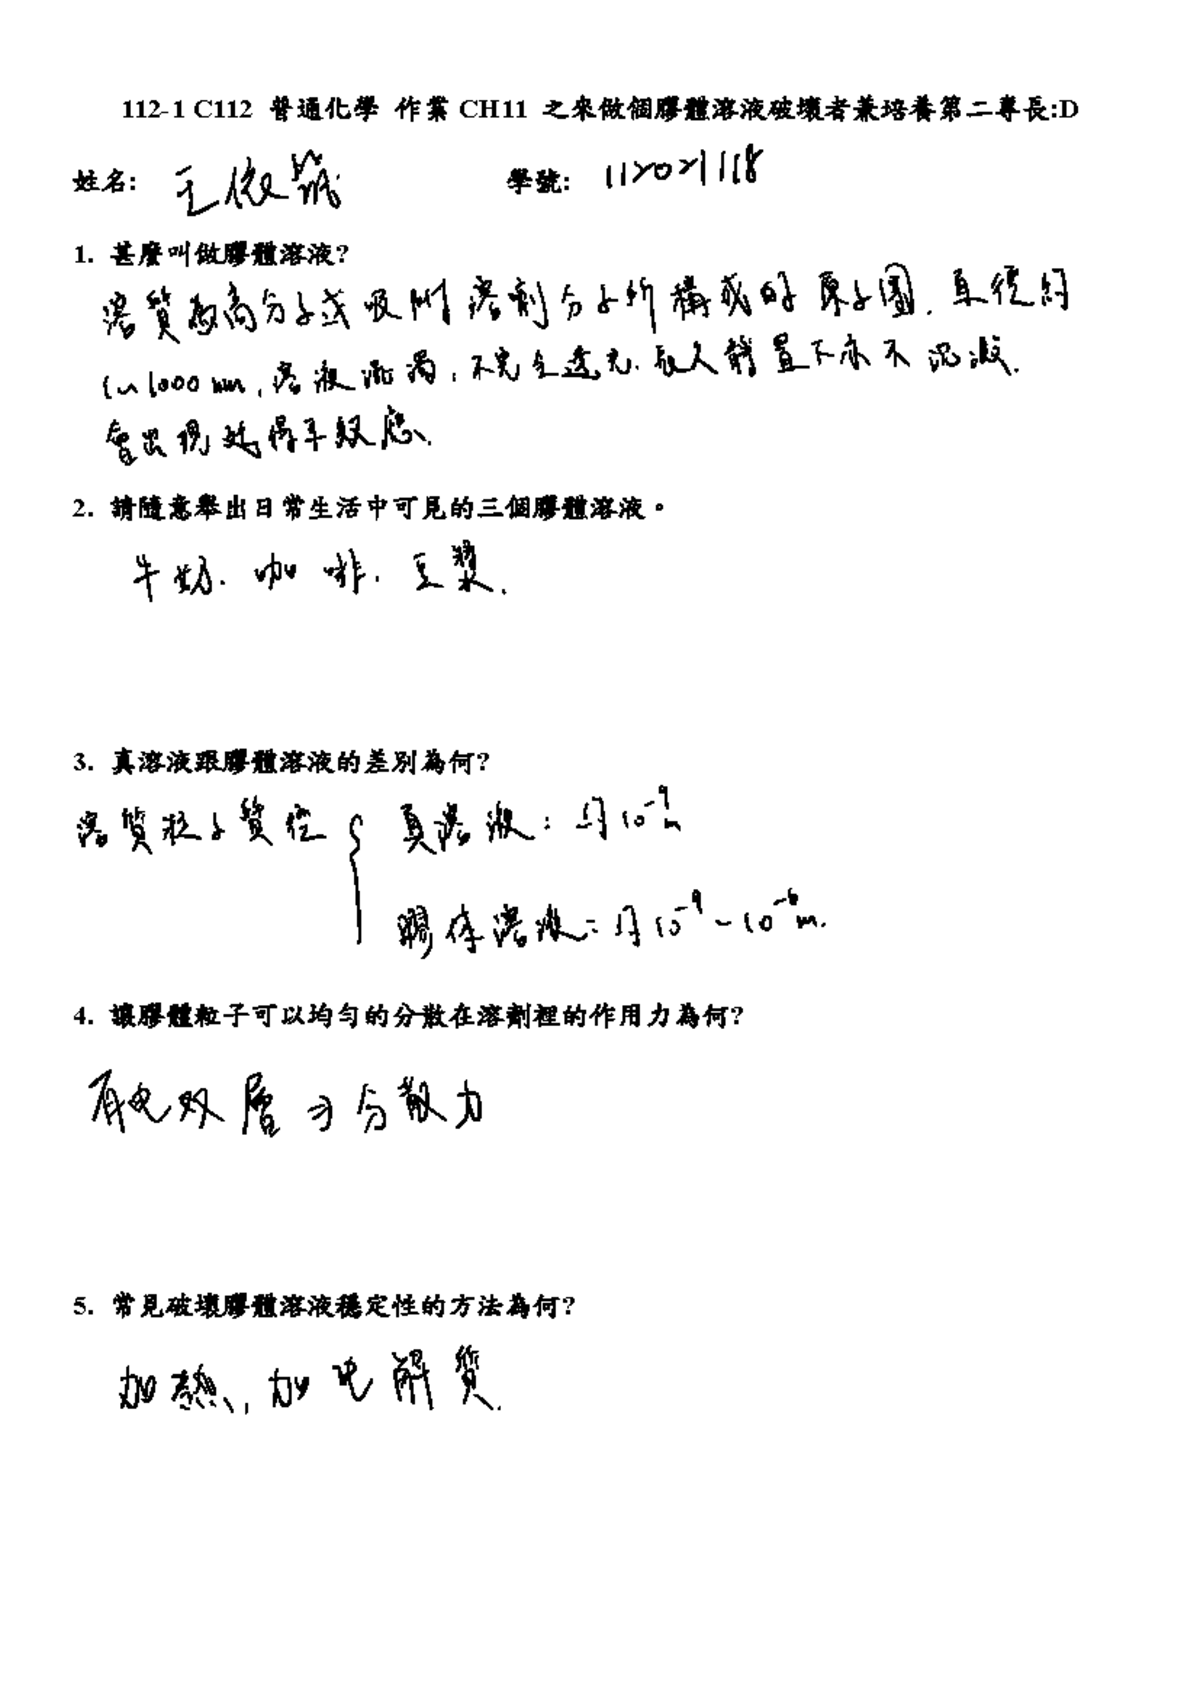 112-1 C112 普通化學 作業 CH11 之來做個膠體溶液破壞者兼培養第二專長:D
姓名: 王微 學號:
1. 甚麼叫做膠體溶液?
溶質為高分子或吸附溶劑分子所構成的原子團. 直徑約
1~1000 nm, 溶液混濁, 不完全透光. 長久靜置下亦不沉澱.
會出現效應.
2. 請隨意舉出日常生活中可見的三個膠體溶液。
牛奶. 咖啡. 豆漿.
3. 真溶液跟膠體溶液的差別為何?
溶質粒子質徑 { 真溶液: 10⁻⁹ m
膠体溶液: 10⁻⁹ - 10⁻⁶ m.
4. 讓膠體粒子可以均勻的分散在溶劑裡的作用力為何?
有电双層 → 分散力
5. 常見破壞膠體溶液穩定性的方法為何?
加熱, 加电解質.